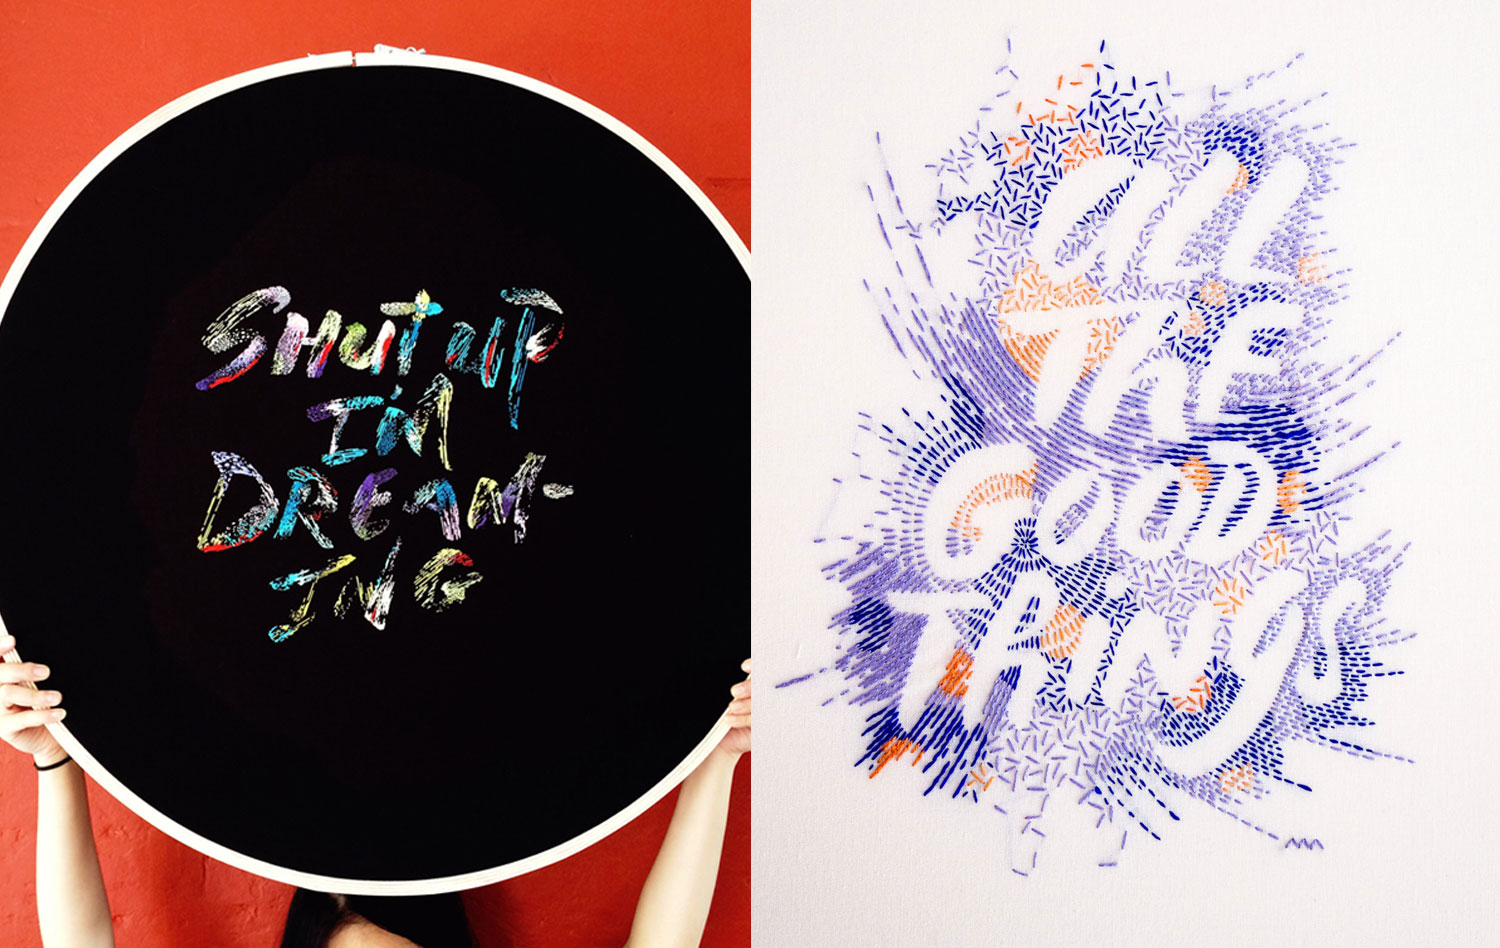 SHUT UP
I'M
DREAM-
ING
all
THE
GOOD
Things